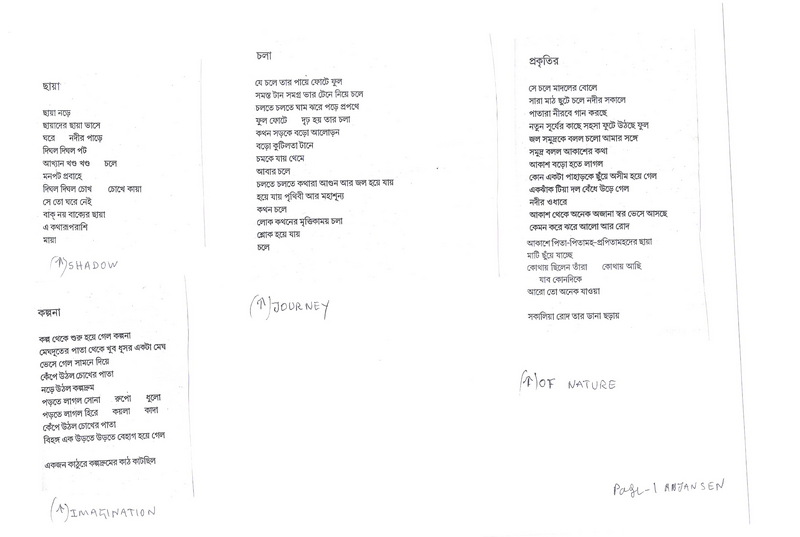 ছায়া
ছায়া নড়ে
ছায়াদের ছায়া ভাসে
ঘরে নদীর পাড়ে
দিঘল দিঘল পট
আখ্যান খণ্ড খণ্ড চলে
মনপট প্রবাহে
দিঘল দিঘল চোখ চোখে কায়া
সে তো ঘরে নেই
বাক্ নয় বাক্যের ছায়া
এ কথারূপরাশি
মায়া
(↑) SHADOW
কল্পনা
কল্প থেকে শুরু হয়ে গেল কল্পনা
মেঘদূতের পাতা থেকে খুব ধূসর একটা মেঘ
ভেসে গেল সামনে দিয়ে
কেঁপে উঠল চোখের পাতা
নড়ে উঠল কল্পদ্রুম
পড়তে লাগল সোনা রুপো ধুলো
পড়তে লাগল হিরে কয়লা কাদা
কেঁপে উঠল চোখের পাতা
বিহঙ্গ এক উড়তে উড়তে বেহাগ হয়ে গেল
একজন কাঠুরে কল্পদ্রুমের কাঠ কাটছিল
(↑) IMAGINATION
চলা
যে চলে তার পায়ে ফোটে ফুল
সমস্ত টান সমগ্র ভার টেনে নিয়ে চলে
চলতে চলতে ঘাম ঝরে পড়ে প্রপথে
ফুল ফোটে দৃঢ় হয় তার চলা
কথন সড়কে বড়ো আলোড়ন
বড়ো কুটিলতা টানে
চমকে যায় থেমে
আবার চলে
চলতে চলতে কথারা আগুন আর জল হয়ে যায়
হয়ে যায় পৃথিবী আর মহাশূন্য
কথন চলে
লোক কথনের মৃত্তিকাময় চলা
শ্লোক হয়ে যায়
চলে
(↑) JOURNEY
প্রকৃতির
সে চলে মাদলের বোলে
সারা মাঠ ছুটে চলে নদীর সকালে
পাতারা নীরবে গান করছে
নতুন সূর্যের কাছে সহসা ফুটে উঠছে ফুল
জল সমুদ্রকে বলল চলো আমার সঙ্গে
সমুদ্র বলল আকাশের কথা
আকাশ বড়ো হতে লাগল
কোন একটা পাহাড়কে ছুঁয়ে অসীম হয়ে গেল
একঝাঁক টিয়া দল বেঁধে উড়ে গেল
নদীর ওধারে
আকাশ থেকে অনেক অজানা স্বর ভেসে আসছে
কেমন করে ঝরে আলো আর রোদ
আকাশে পিতা-পিতামহ-প্রপিতামহদের ছায়া
মাটি ছুঁয়ে যাচ্ছে
কোথায় ছিলেন তাঁরা কোথায় আছি
যাব কোনদিকে
আরো তো অনেক যাওয়া
সকালিয়া রোদ তার ডানা ছড়ায়
(↑) OF NATURE
Page-1